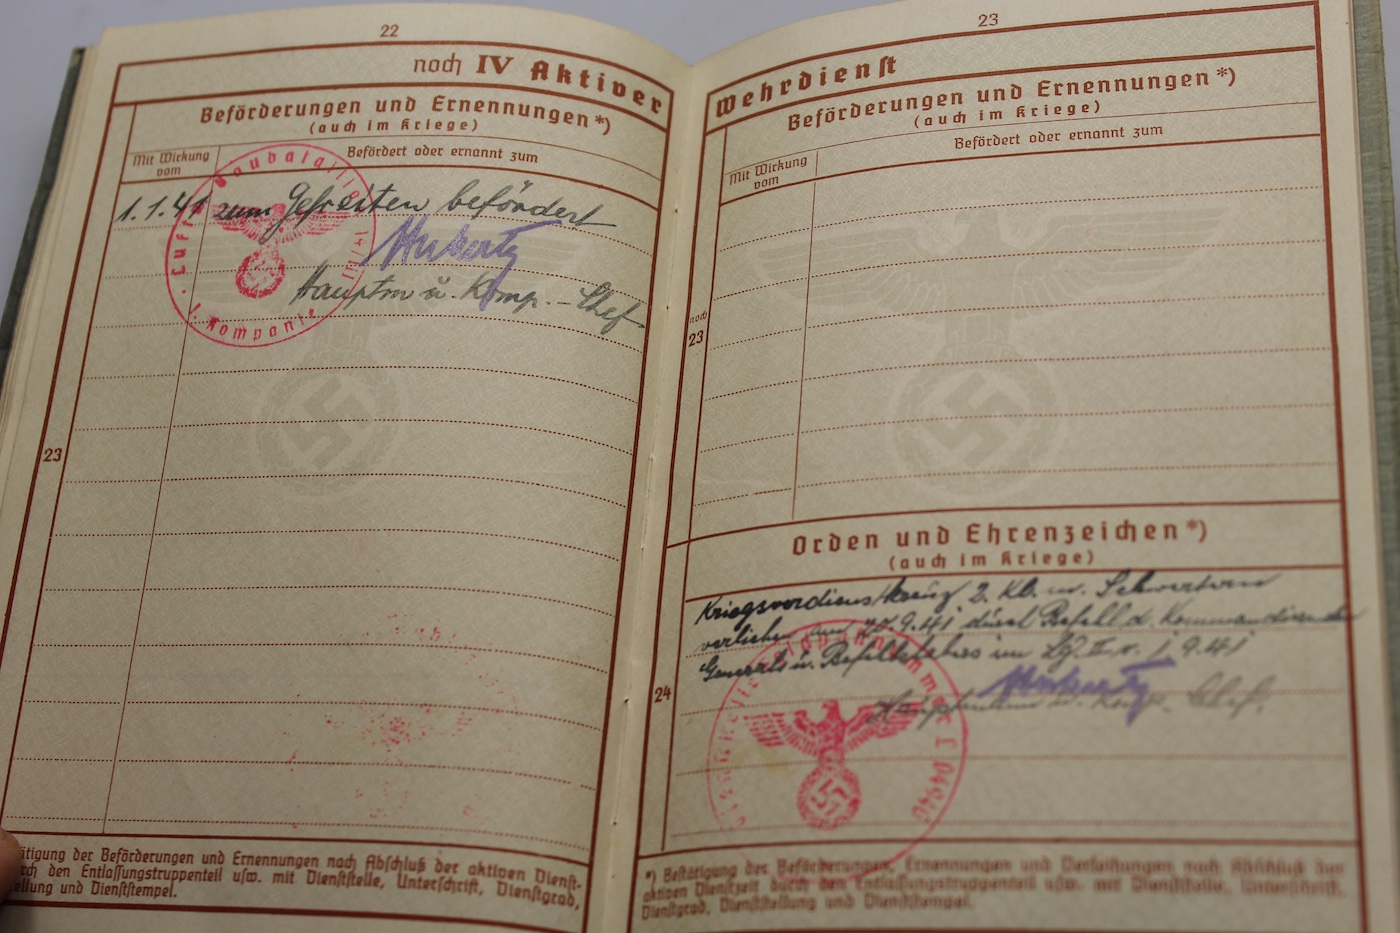 22
noch IV Aktiver
Beförderungen und Ernennungen*)
(auch im Kriege)
Mit Wirkung vom
Befördert oder ernannt zum
1.1.41 zum Gefreiten befördert
Hauptm u. Komp.-Chef
1. Kompanie
23
tigung der Beförderungen und Ernennungen nach Abschluß der aktiven Dienst-
ch den Entlassungstruppenteil usw. mit Dienststelle, Unterschrift, Dienstgrad,
ellung und Dienststempel.
23
Wehrdienst
Beförderungen und Ernennungen*)
(auch im Kriege)
Mit Wirkung vom
Befördert oder ernannt zum
noch
23
Orden und Ehrenzeichen*)
(auch im Kriege)
Kriegsverdienstkreuz 2. Kl. m. Schwertern
verliehen am .9.41 durch Befehl d. Kommandierenden
Generals u. Befehlshabers im Lg. 1.9.41
Hauptmann u. Komp. Chef.
24
*) Bestätigung der Beförderungen, Ernennungen und Verleihungen nach Abschluß der
aktiven Dienstzeit durch den Entlassungstruppenteil usw. mit Dienststelle, Unterschrift,
Dienstgrad, Dienststellung und Dienststempel.